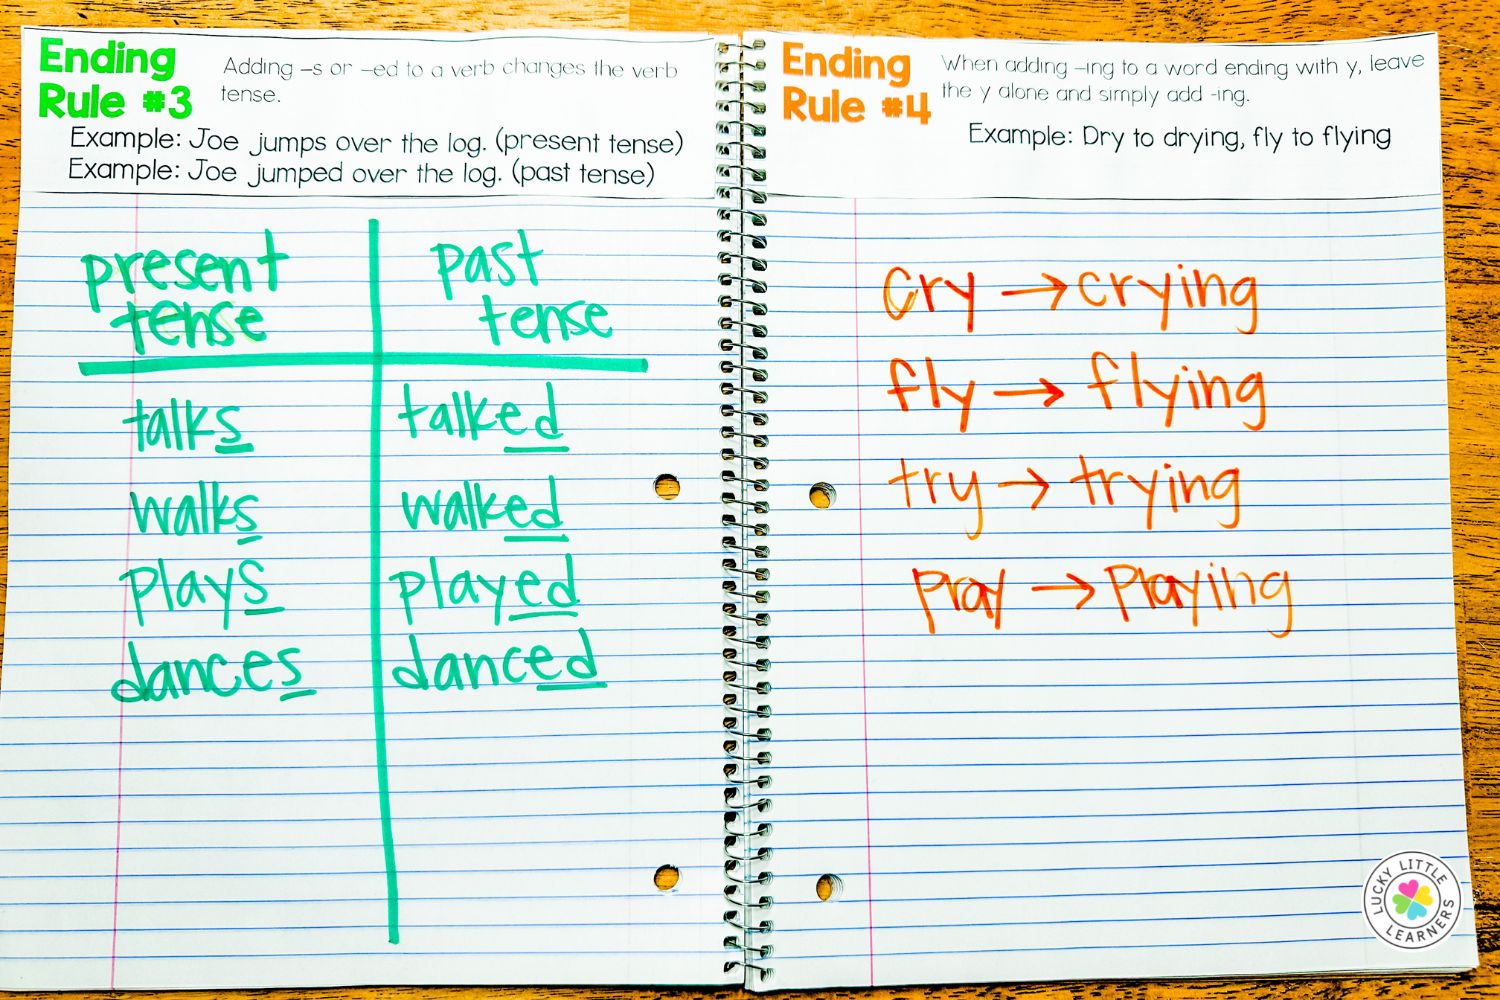 Ending
Rule #3
Adding –s or –ed to a verb changes the verb
tense.
Example: Joe jumps over the log. (present tense)
Example: Joe jumped over the log. (past tense)
present
tense
past
tense
talks
talked
walks
walked
plays
played
dances
danced
Ending
Rule #4
When adding –ing to a word ending with y, leave
the y alone and simply add -ing.
Example: Dry to drying, fly to flying
cry → crying
fly → flying
try → trying
pray → praying
LUCKY LITTLE
LEARNERS